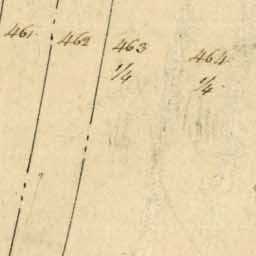 461 462 463 464
1/4 1/4